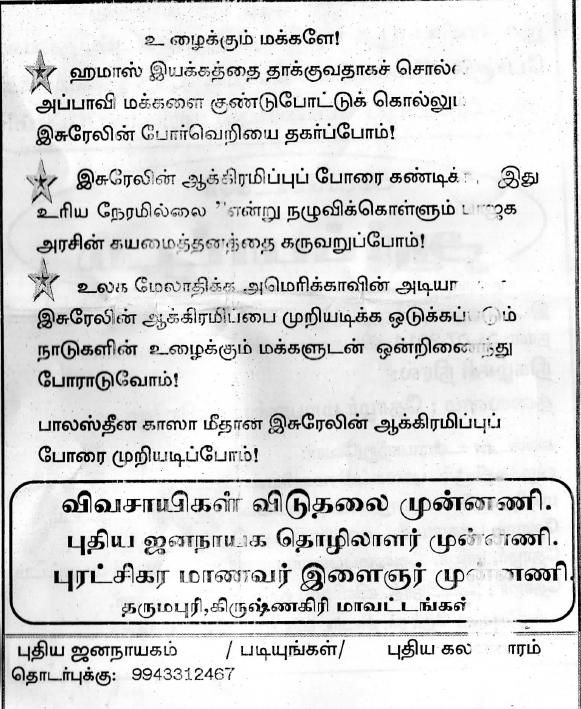 உழைக்கும் மக்களே!
ஹமாஸ் இயக்கத்தை தாக்குவதாகச்
அப்பாவி மக்களை குண்டுபோட்டுக்
இசுரேலின் போர்வெறியை தகர்ப்போம்!
இசுரேலின் ஆக்கிரமிப்புப் போரை இது
உரிய நேரமில்லை "என்று நழுவிக்கொள்ளும் பாஜக
அரசின் கயமைத்தனத்தை கருவறுப்போம்!
உலக மேலாதிக்க அமெரிக்காவின்
இசுரேலின் ஆக்கிரமிப்பை முறியடிக்க ஒடுக்கப்படும்
நாடுகளின் உழைக்கும் மக்களுடன் ஒன்றிணைந்து
போராடுவோம்!
பாலஸ்தீன காஸா மீதான இசுரேலின் ஆக்கிரமிப்புப்
போரை முறியடிப்போம்!
விவசாயிகள் விடுதலை முன்னணி.
புதிய ஜனநாயக தொழிலாளர் முன்னணி.
புரட்சிகர மாணவர் இளைஞர் முன்னணி.
தருமபுரி,கிருஷ்ணகிரி மாவட்டங்கள்
புதிய ஜனநாயகம் / படியுங்கள்/ புதிய
தொடர்புக்கு: 9943312467